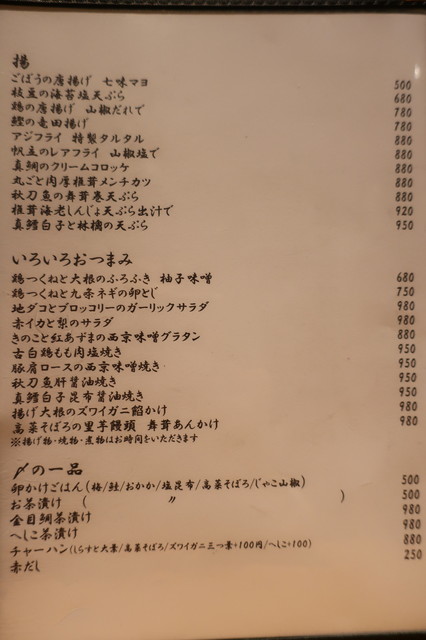 揚
ごぼうの唐揚げ 七味マヨ 500
枝豆の海苔塩天ぷら 680
鶏の唐揚げ 山椒だれで 780
鰹の竜田揚げ 780
アジフライ 特製タルタル 880
帆立のレアフライ 山椒塩で 880
真鯛のクリームコロッケ 880
丸ごと肉厚椎茸メンチカツ 880
秋刀魚の舞茸巻天ぷら 880
椎茸海老しんじょ天ぷら出汁で 920
真鱈白子と林檎の天ぷら 950
いろいろおつまみ
鶏つくねと大根のふろふき 柚子味噌 680
鶏つくねと九条ネギの卵とじ 750
地ダコとブロッコリーのガーリックサラダ 980
赤イカと梨のサラダ 980
きのこと紅あずまの西京味噌グラタン 880
古白鶏もも肉塩焼き 950
豚肩ロースの西京味噌焼き 950
秋刀魚肝醤油焼き 950
真鱈白子昆布醤油焼き 950
揚げ大根のズワイガニ餡かけ 980
高菜そぼろの里芋饅頭 舞茸あんかけ 980
※揚げ物・焼物・煮物はお時間をいただきます
〆の一品
卵かけごはん(梅/鮭/おかか/塩昆布/高菜そぼろ/じゃこ山椒) 500
お茶漬け ( 〃 ) 500
金目鯛茶漬け 980
へしこ茶漬け 980
チャーハン(しらすと大葉/高菜そぼろ/ズワイガニ三つ葉+100円/へしこ+100) 880
赤だし 250